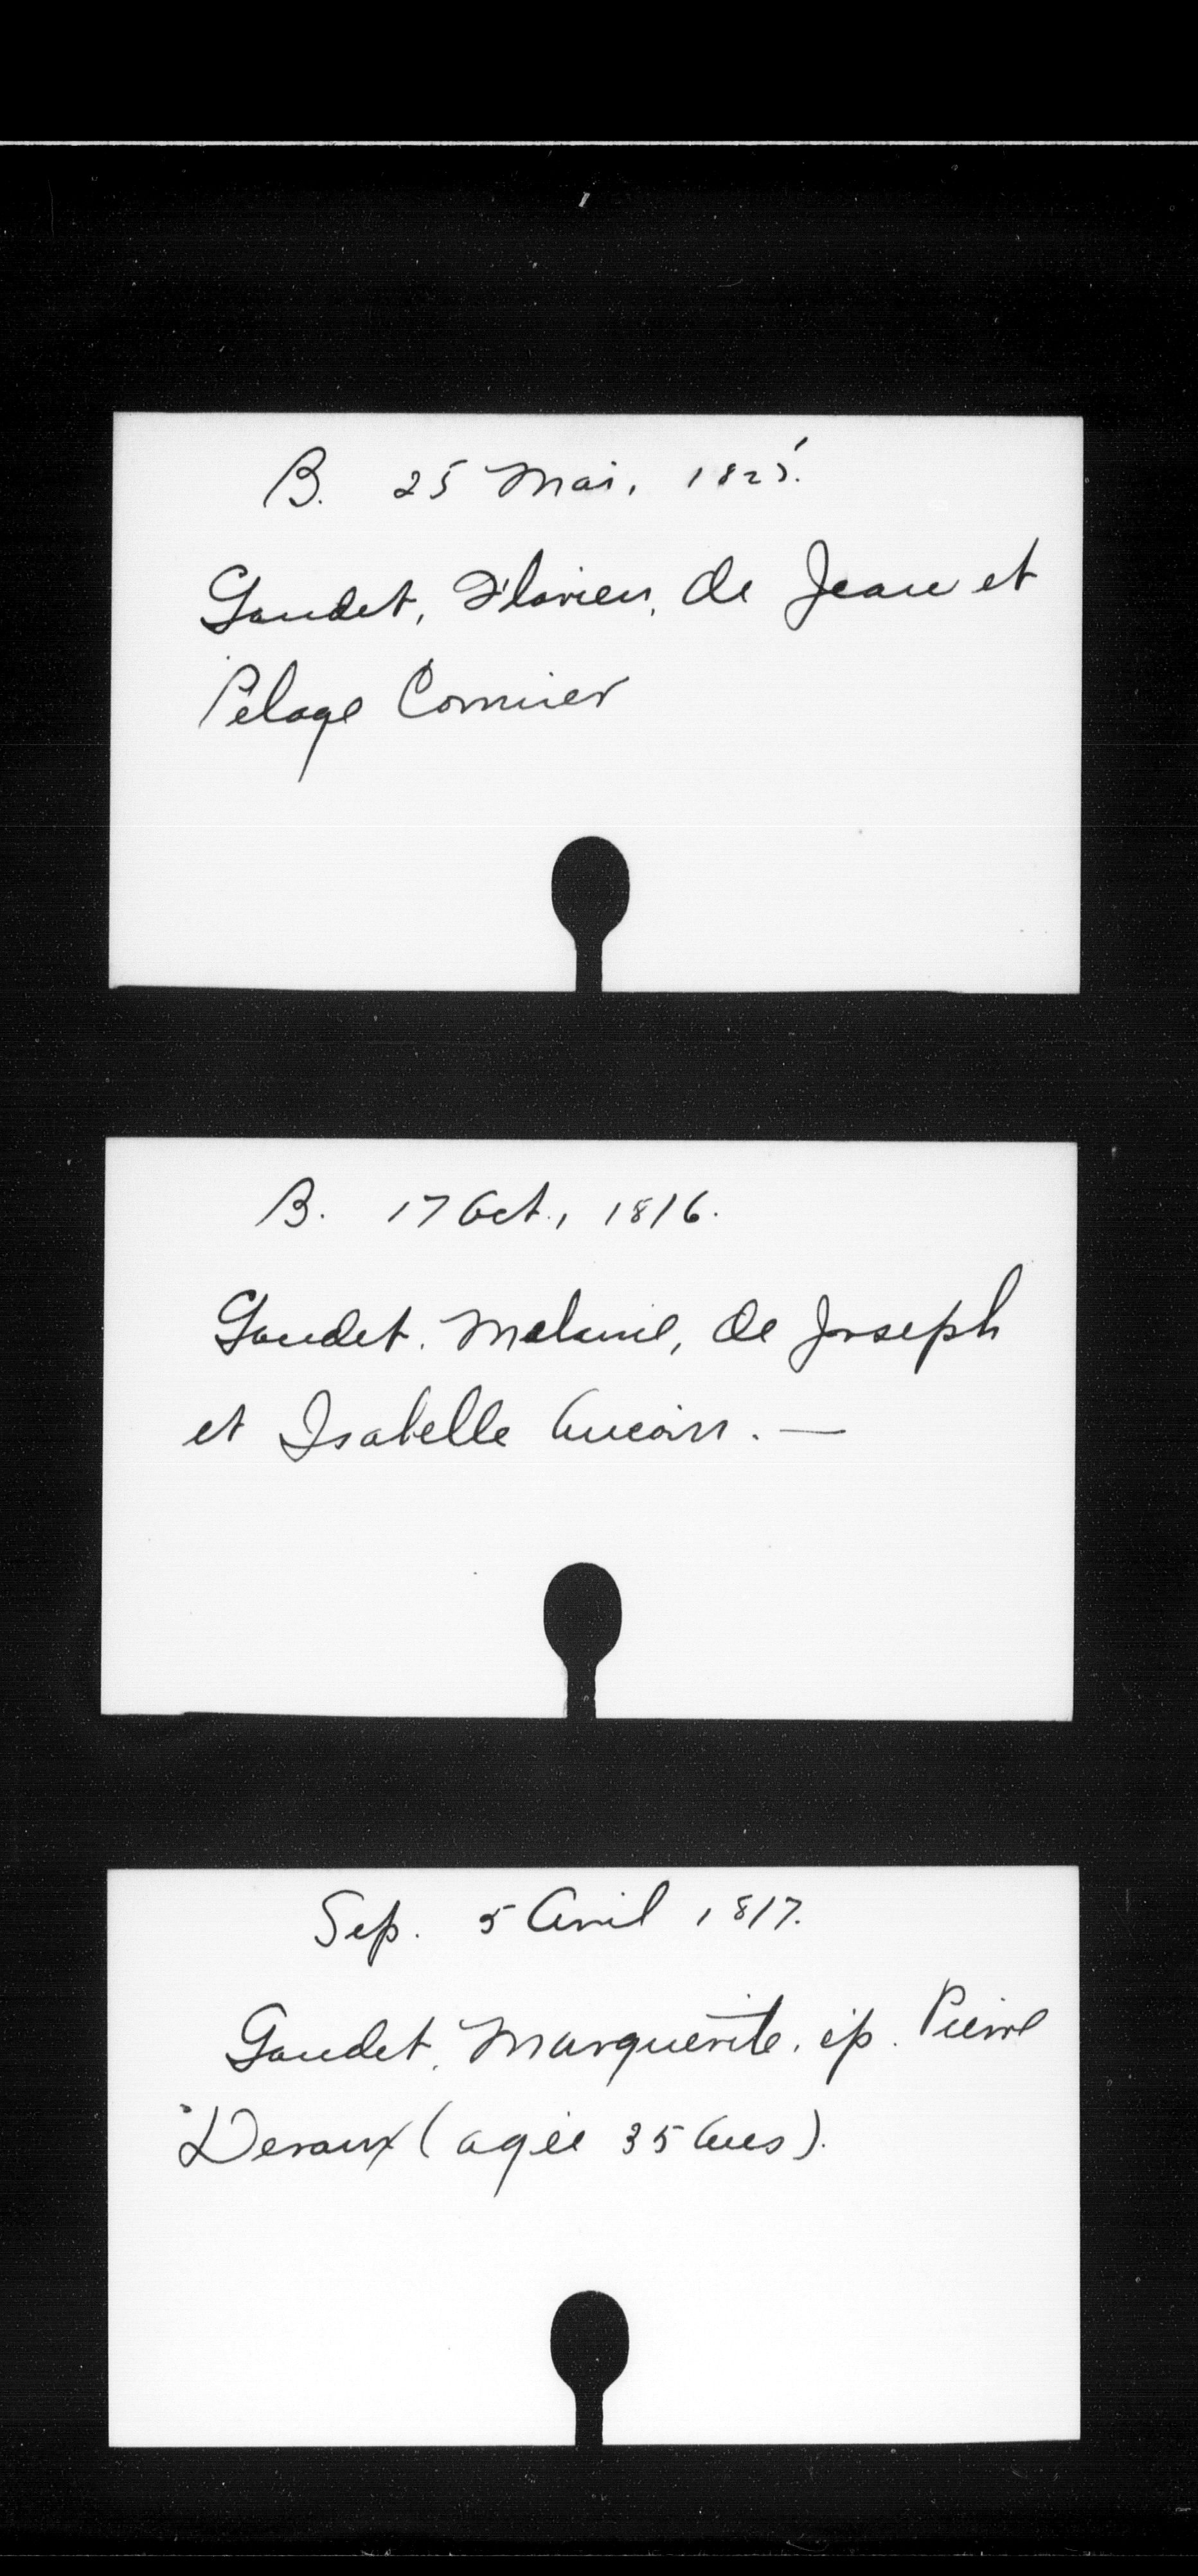 B. 25 Mai, 1825.
Gaudet, Flavien, de Jean et
Pélage Cormier
B. 17 Oct., 1816.
Gaudet. Melanie, de Joseph
et Isabelle Aucoin. —
Sep. 5 Avril 1817.
Gaudet, Marguerite, ép. Pierre
Devaux (agée 35 Ans).